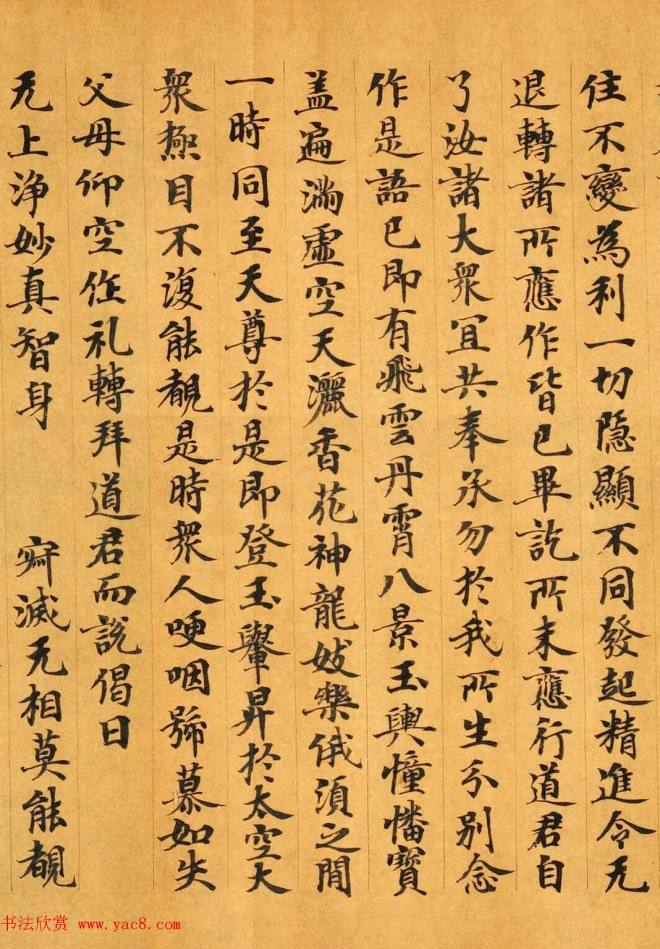 住不變為利一切隱顯不同發起精進令无
退轉諸所應作皆已畢訖所未應行道君自
了汝諸大眾宜共奉承勿於我所生分別念
作是語已即有飛雲丹霄八景玉輿幢幡寶
盖遍滿虛空天灑香花神龍妓樂俄湏之間
一時同至天尊於是即登玉轝昇於太空大
眾極目不復能覩是時眾人哽咽號慕如失
父母仰空作礼轉拜道君而說偈曰
无上淨妙真智身 寂滅无相莫能覩
书法欣赏 www.yac8.com